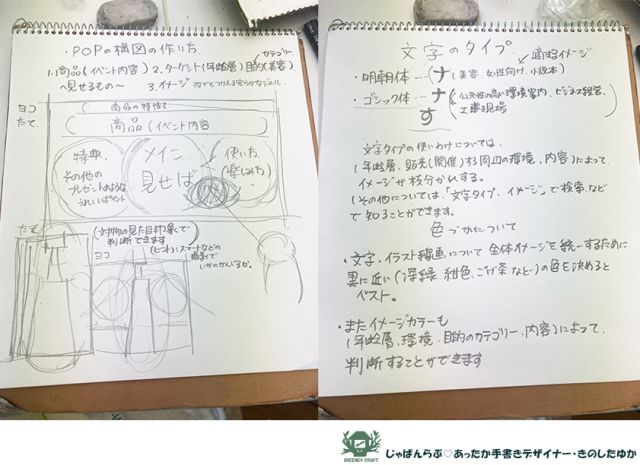 ・POPの構図の作い方.
カテゴリー
1.商品(イベント内容) 2.ターゲット(年齢層)目的(美容)
へ見せるもの〜 3.イメージ
ヨコ
たて
商品の特徴
商品(イベント内容
特典、
その他の
プレゼントのような
うれしいポイント
メイン、
見せば
使い方
(楽しみ方)
たて
(文椨物の見た目印象で
判断できます
ヨコ
(ヒント):スマートなどの
いかにかんじるか。
文字のタイプ.
適するイメージ
・明朝体…(ナ (美容、女性向け、小説本)
・ゴシック体…ナ (公共性の高い環境案内、ビジネス経営、
工事現場)
す
文字タイプの使いわけについては、
(年齢層、販売(開催)する周辺の環境、内容)によって
イメージが枝分かれする。
(その他については、「文字タイプ、イメージ」で検索など
で知ることができます。
色づかいについて
・文字、イラスト線画について 全体イメージを統一するために
黒に近い(深緑 紺色、こげ茶など)の色を決めると
ベスト。
・またイメージカラーも
(年齢層、環境、目的のカテゴリー、内容)によって、
判断することができます
GREENEY CRAFT
じゃぱんらぶ♡あったか手書きデザイナー・きのしたゆか